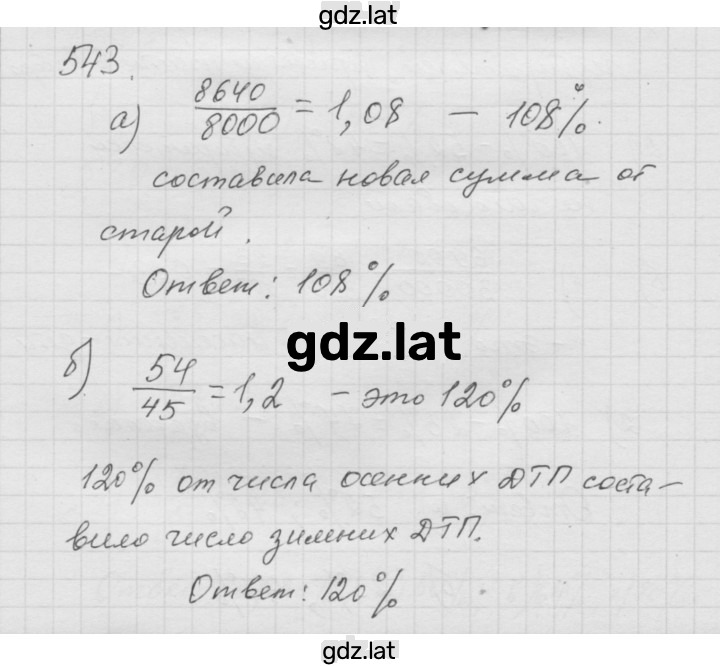 gdz.lat
543.
а) 8640/8000 = 1,08 — 108%.
составила новая сумма от
старой.
Ответ: 108%
gdz.lat
б) 54/45 = 1,2 — это 120%
120% от числа осенних ДТП соста-
вило число зимних ДТП.
Ответ: 120%
gdz.lat